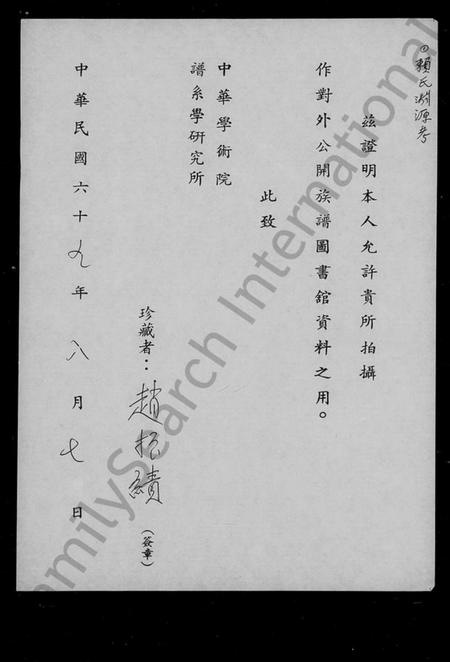 ①賴氏淵源考
茲證明本人允許貴所拍攝
作對外公開族譜圖書舘資料之用。
此致
中華學術院
譜系學研究所
珍藏者：趙振績（簽章）
中華民國六十九年八月七日
FamilySearch International